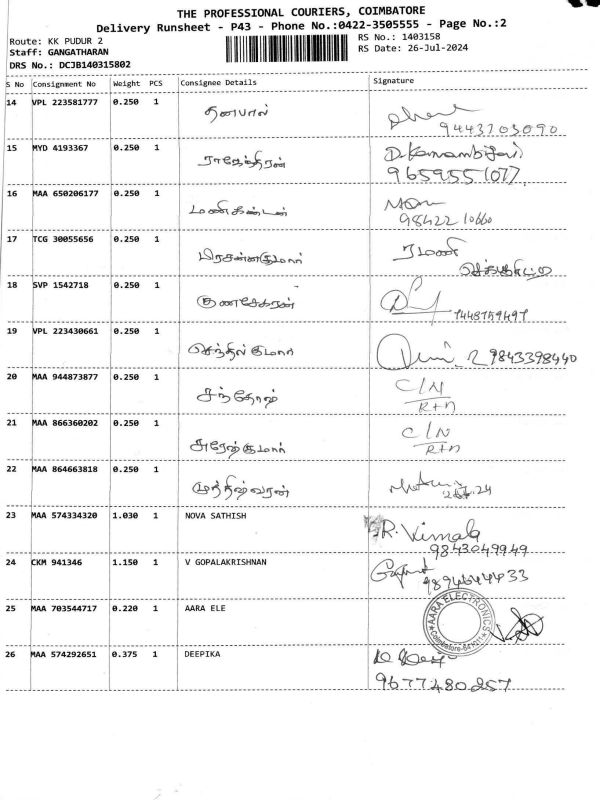 THE PROFESSIONAL COURIERS, COIMBATORE
Delivery Runsheet - P43 - Phone No.:0422-3505555 - Page No.:2
Route: KK PUDUR 2
RS No.: 1403158
Staff: GANGATHARAN
RS Date: 26-Jul-2024
DRS No.: DCJB140315802
S No Consignment No Weight PCS Consignee Details Signature
14 VPL 223581777 0.250 1 தனபால்
9443703090
15 MYD 4193367 0.250 1 ராஜேந்திரன்
9659551077
16 MAA 650206177 0.250 1 மணிகண்டன்
9842210660
17 TCG 30055656 0.250 1 பிரசன்னகுமார் ரமணி
18 SVP 1542718 0.250 1 குணசேகரன்
7448759497
19 VPL 223430661 0.250 1 செந்தில்குமார்
9843398440
20 MAA 944873877 0.250 1 சந்தோஷ் C/N
R+n
21 MAA 866360202 0.250 1 சுரேஷ்குமார் C/N
R+n
22 MAA 864663818 0.250 1
23 MAA 574334320 1.030 1 NOVA SATHISH R. Vimala
9843049949
24 CKM 941346 1.150 1 V GOPALAKRISHNAN
9894644433
25 MAA 703544717 0.220 1 AARA ELE
AARA ELECTRONICS
Coimbatore-641011
26 MAA 574292651 0.375 1 DEEPIKA
9677480257